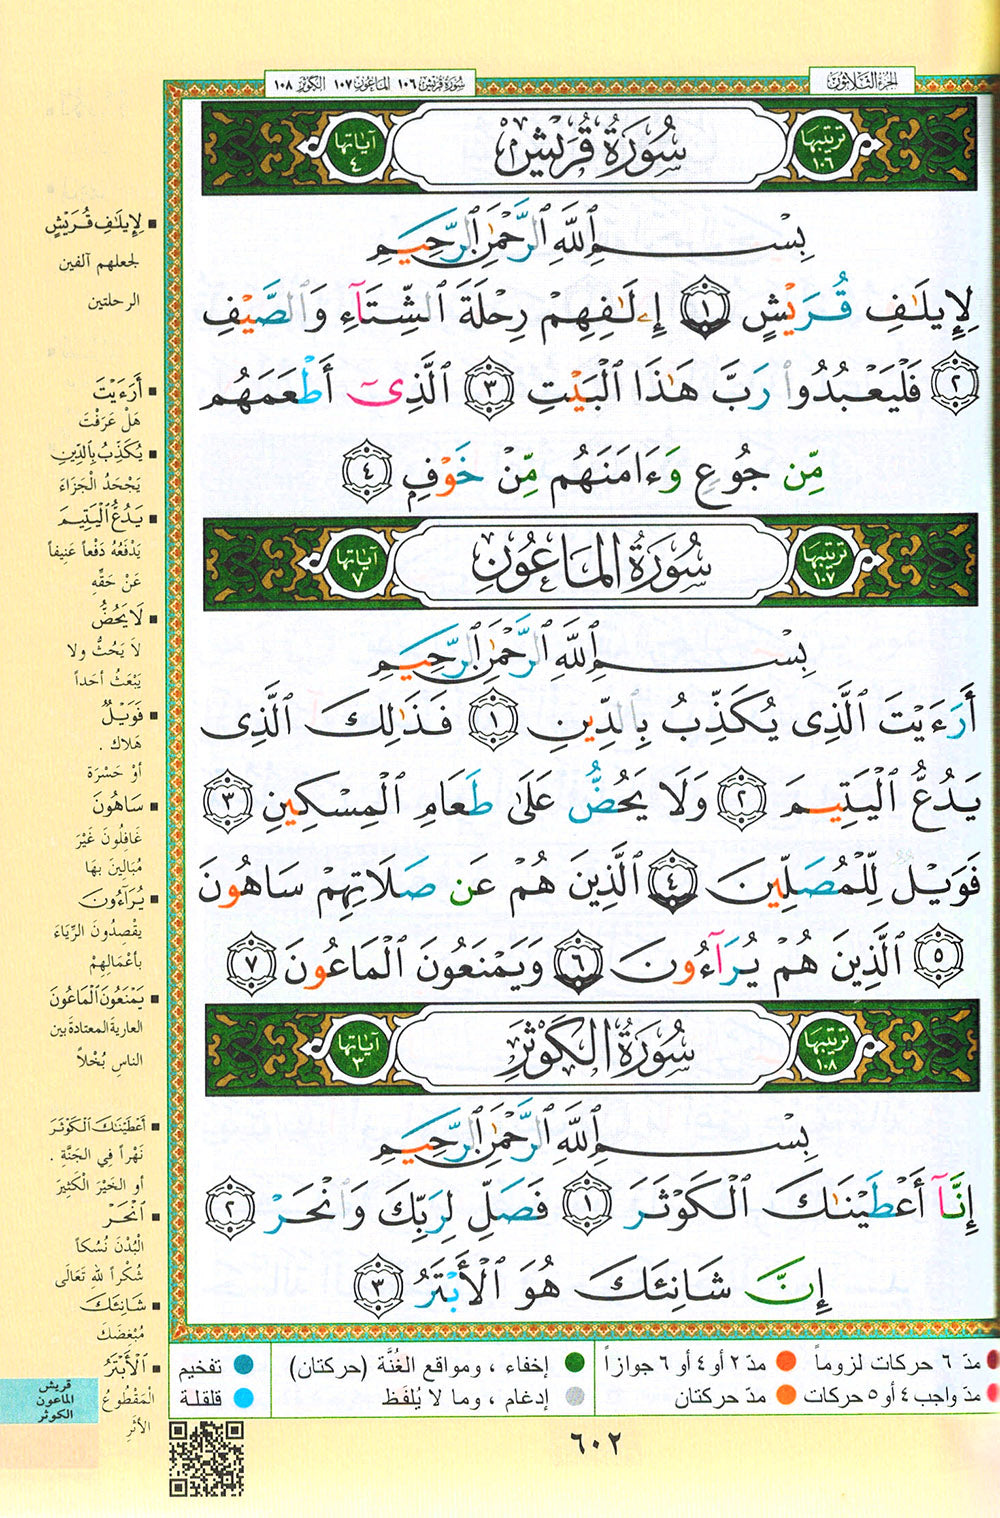 الجزء الثلاثون
سورة قريش ١٠٦ الماعون ١٠٧ الكوثر ١٠٨
ترتيبها ١٠٦
سُورَةُ قُرَيْشٍ
آياتها ٤
بِسْمِ ٱللَّهِ ٱلرَّحْمَٰنِ ٱلرَّحِيمِ
لِإِيلَٰفِ قُرَيْشٍ ١ إِۦلَٰفِهِمْ رِحْلَةَ ٱلشِّتَآءِ وَٱلصَّيْفِ
٢ فَلْيَعْبُدُوا۟ رَبَّ هَٰذَا ٱلْبَيْتِ ٣ ٱلَّذِىٓ أَطْعَمَهُم
مِّن جُوعٍ وَءَامَنَهُم مِّنْ خَوْفٍۭ ٤
ترتيبها ١٠٧
سُورَةُ الْمَاعُونِ
آياتها ٧
بِسْمِ ٱللَّهِ ٱلرَّحْمَٰنِ ٱلرَّحِيمِ
أَرَءَيْتَ ٱلَّذِى يُكَذِّبُ بِٱلدِّينِ ١ فَذَٰلِكَ ٱلَّذِى
يَدُعُّ ٱلْيَتِيمَ ٢ وَلَا يَحُضُّ عَلَىٰ طَعَامِ ٱلْمِسْكِينِ ٣
فَوَيْلٌ لِّلْمُصَلِّينَ ٤ ٱلَّذِينَ هُمْ عَن صَلَاتِهِمْ سَاهُونَ
٥ ٱلَّذِينَ هُمْ يُرَآءُونَ ٦ وَيَمْنَعُونَ ٱلْمَاعُونَ ٧
ترتيبها ١٠٨
سُورَةُ الْكَوْثَرِ
آياتها ٣
بِسْمِ ٱللَّهِ ٱلرَّحْمَٰنِ ٱلرَّحِيمِ
إِنَّآ أَعْطَيْنَٰكَ ٱلْكَوْثَرَ ١ فَصَلِّ لِرَبِّكَ وَٱنْحَرْ ٢
إِنَّ شَانِئَكَ هُوَ ٱلْأَبْتَرُ ٣
لِإِيلَٰفِ قُرَيْشٍ
لجعلهم آلفين
الرحلتين
أَرَءَيْتَ
هَلْ عَرَفْتَ
يُكَذِّبُ بِٱلدِّينِ
يَجْحَدُ الْجَزَاءَ
يَدُعُّ ٱلْيَتِيمَ
يَدْفَعُهُ دَفْعاً عَنِيفاً
عَنْ حَقِّهِ
لَا يَحُضُّ
لاَ يَحُثُّ ولا
يَبْعَثُ أحَداً
فَوَيْلٌ
هَلاك .
أوْ حَسْرَة
سَاهُونَ
غَافِلُونَ غَيْرَ
مُبَالِينَ بهَا
يُرَآءُونَ
يقْصِدُونَ الرِّيَاءَ
بأعْمَالِهِمْ
يَمْنَعُونَ ٱلْمَاعُونَ
العارية المعتادة بين
الناسِ بُخْلاً
أَعْطَيْنَٰكَ ٱلْكَوْثَرَ
نَهْراً فِي الجَنَّةِ .
أو الخَيْرَ الْكَثِيرَ
ٱنْحَرْ
الْبُدْنَ نُسُكاً
شُكْراً للهِ تَعَالَى
شَانِئَكَ
مُبْغِضَكَ
ٱلْأَبْتَرُ
الْمَقْطُوعُ
الأثَرِ
قريش
الماعون
الكوثر
مدّ ٦ حركات لزوماً مدّ ٢ أو ٤ أو ٦ جوازاً إخفاء ، ومواقع الغُنَّة (حركتان) تفخيم
مدّ واجب ٤ أو ٥ حركات مدّ حركتان إدغام ، وما لا يُلفَظ قلقلة
٦٠٢